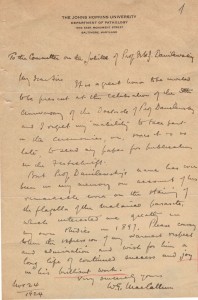 THE JOHNS HOPKINS UNIVERSITY
DEPARTMENT OF PATHOLOGY
BALTIMORE, MARYLAND
To the Committee on the Jubilee of Prof. Danilewsky
My dear Sirs
It is a great honor to be invited
to be present at the celebration of the
Anniversary of the Doctorate of Prof. Danilewsky
and I regret my inability to take part
in the ceremonies or, since it is so
late, to send any paper for publication
in the Festschrift.
But Prof. Danilewsky's name has ever
been in my memory on account of his
remarkable work on the
flagella of the malarial parasite,
which interested me greatly in
my own studies in 1897. Please convey
to him the expression of my warmest respect
and admiration and wish for him a
long life of continued success and joy
in his brilliant work.
Very sincerely yours
W.G. MacCallum
1924